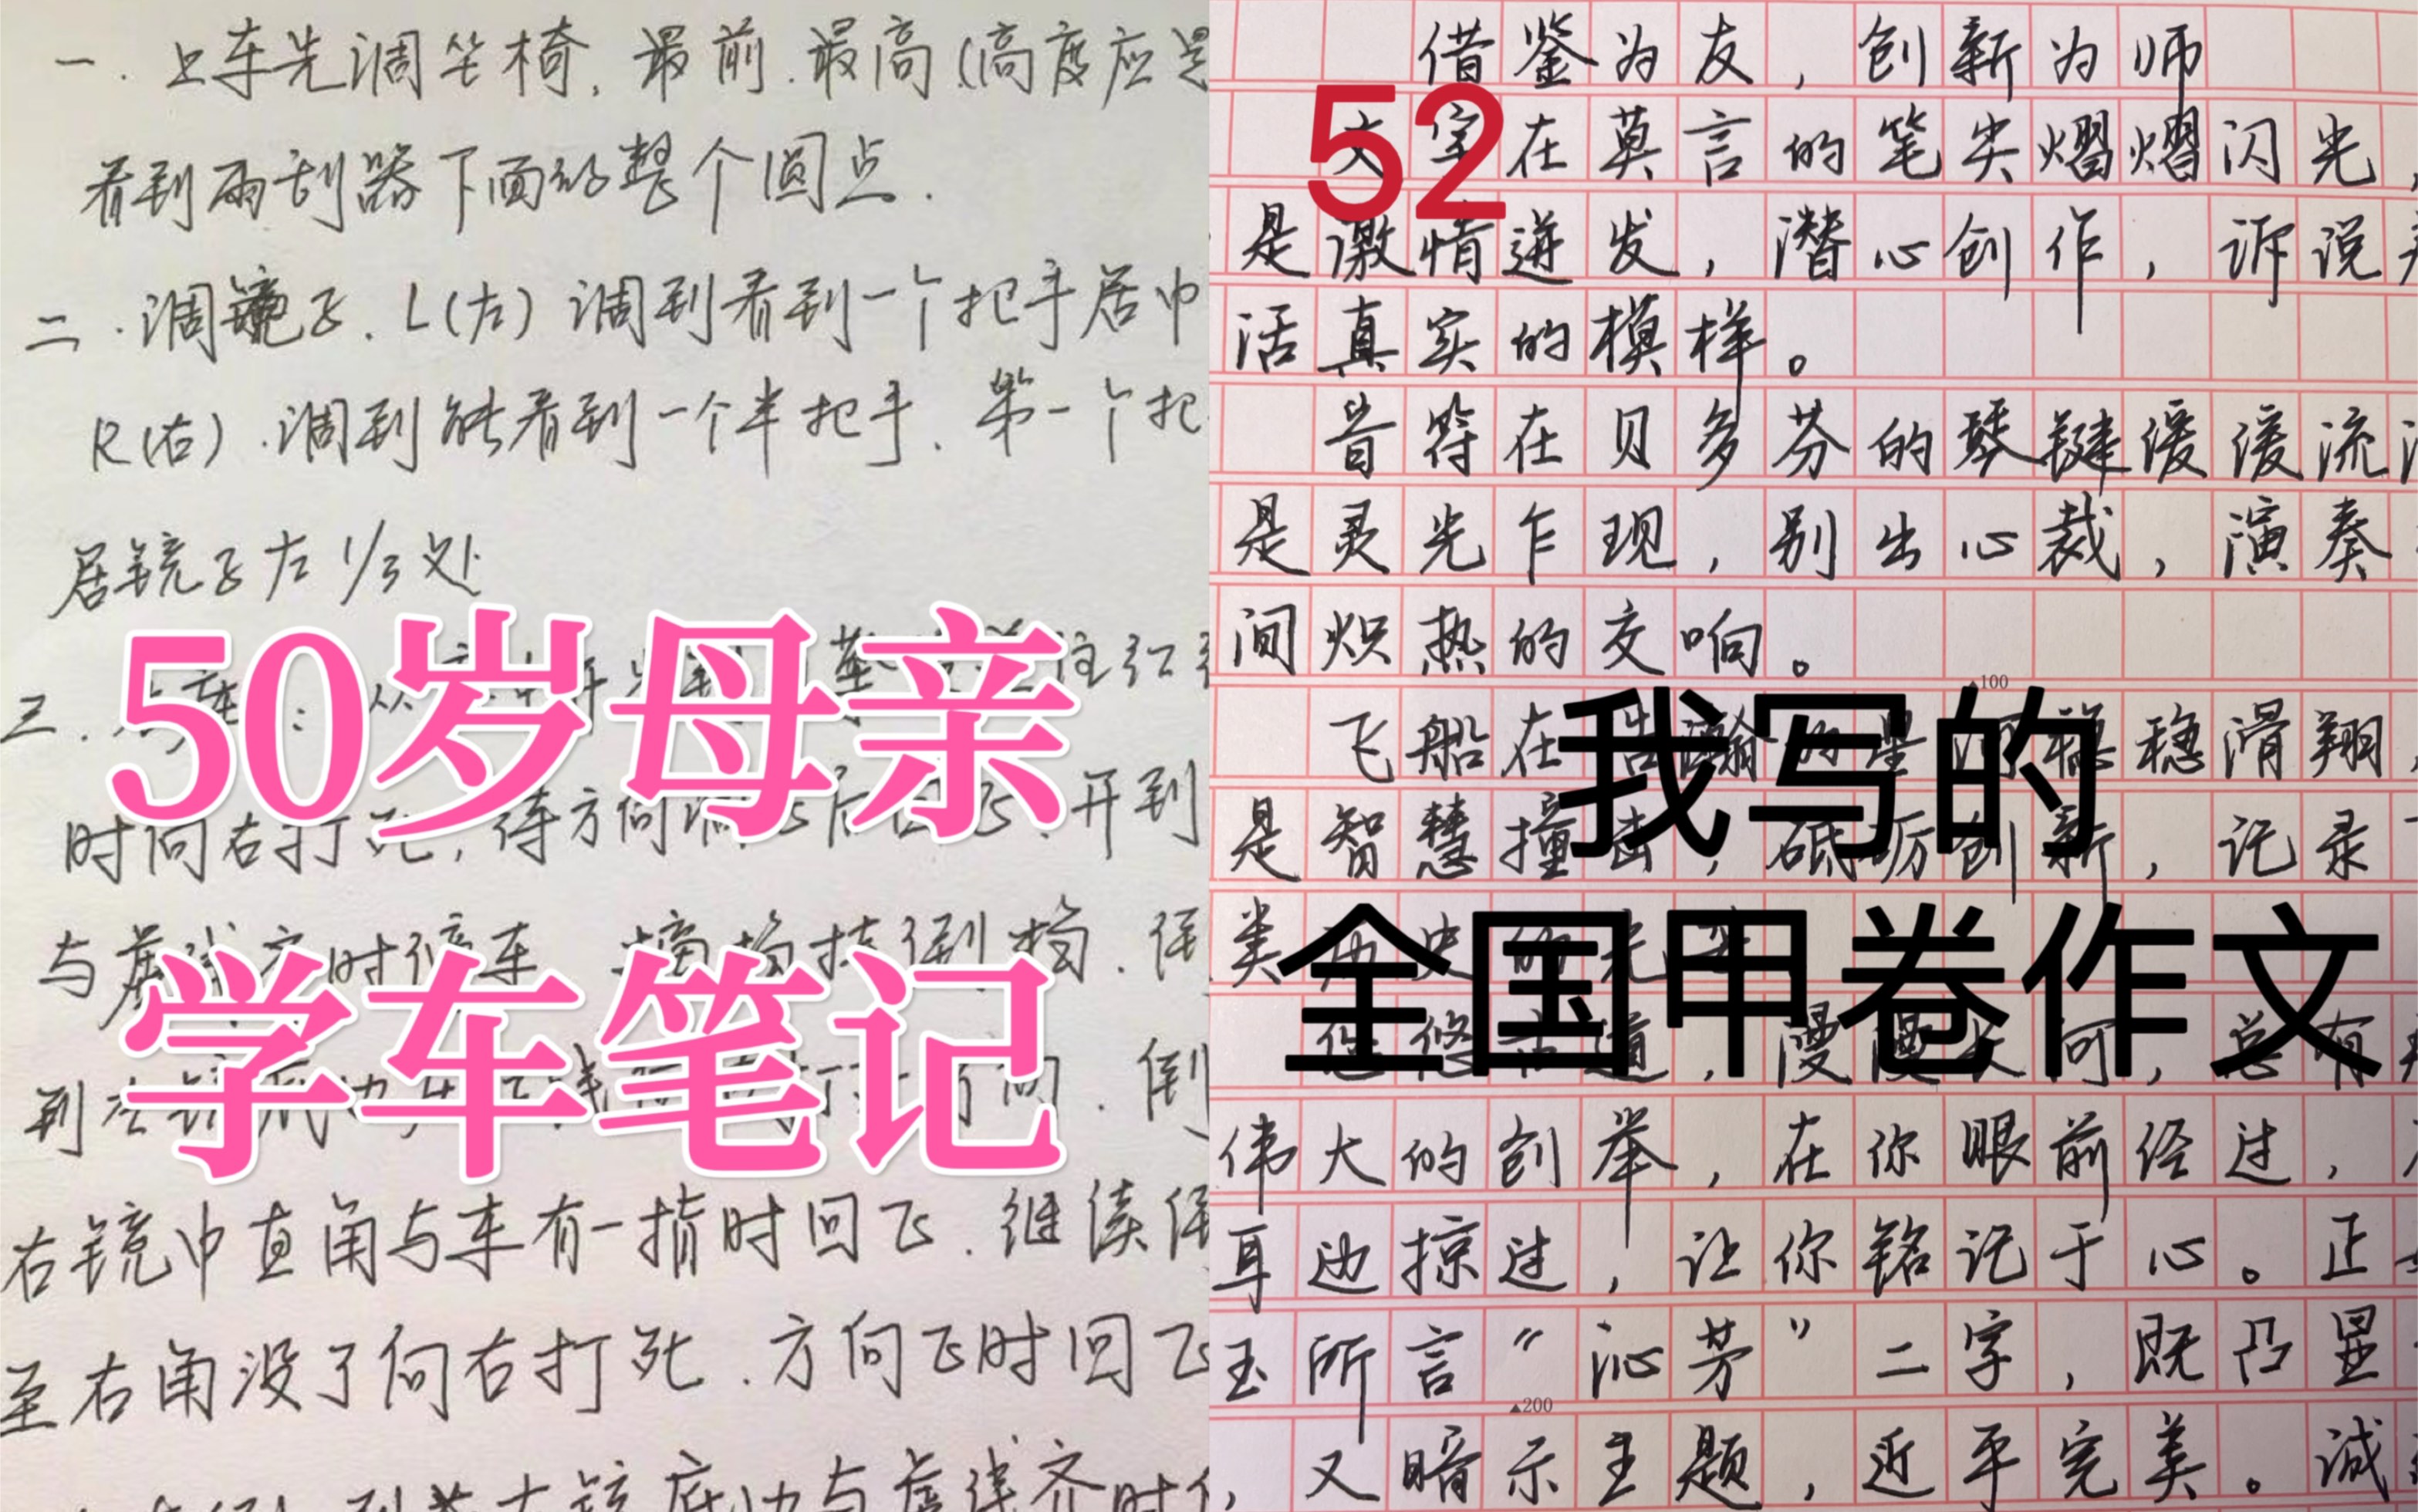 一.上车先调坐椅,最前.最高(高度应是
看到雨刮器下面的整个圆点.
二.调镜子.L(左)调到看到一个把手居中
R(右).调到能看到一个半把手.第一个把
居镜子左1/3处
50岁母亲
三.
时向右打死,待方向 开到
与 时停车 挂倒档.
学车笔记
到 倒
右镜中直角与车有一指时回飞.继续
至右角没了向右打死.方向飞时回飞
与虚线齐时
借鉴为友,创新为师
52
文字在莫言的笔尖熠熠闪光,
是激情迸发,潜心创作,诉说
活真实的模样。
音符在贝多芬的琴键缓缓流
是灵光乍现,别出心裁,演奏
间炽热的交响。
▲100
飞船在浩瀚的星河稳稳滑翔,
我写的
是智慧撞击,砥砺创新,记录
类历史的光
全国甲卷作文
悠悠古道,漫漫长河,总有
伟大的创举,在你眼前经过,
耳边掠过,让你铭记于心。正
玉所言“沁芳”二字,既凸显
▲200
,又暗示主题,近乎完美。诚